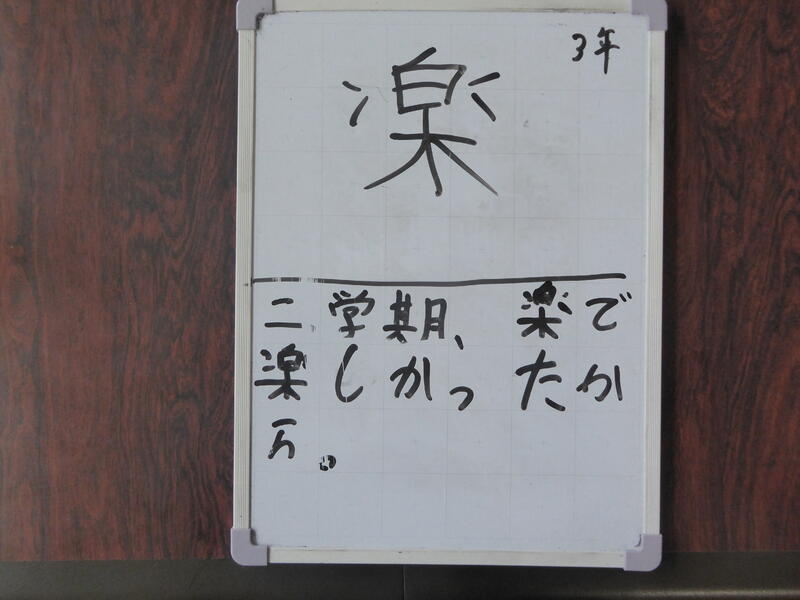 3年
楽
二学期、楽で
楽しかったか
ら。